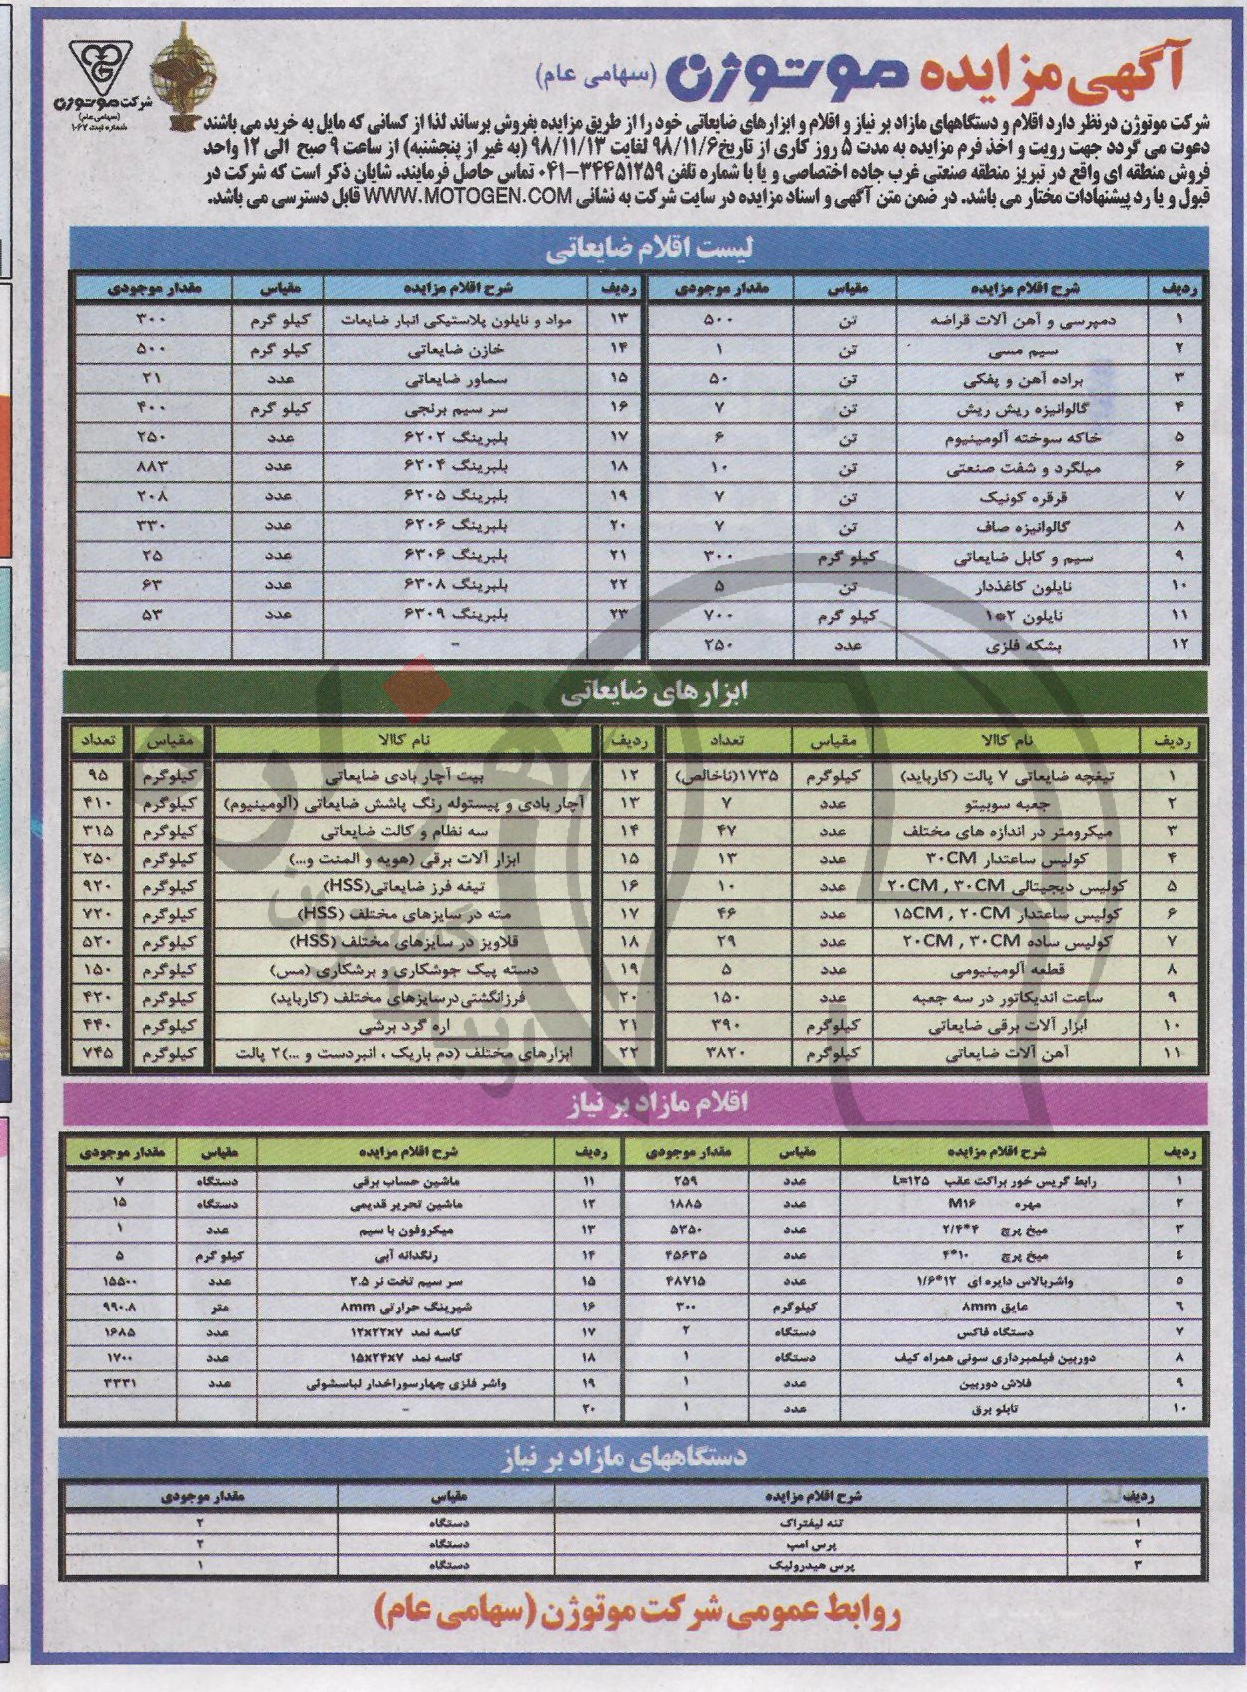 آگهی مزایده موتوژن (سهامی عام)
شرکت موتوژن
(سهامی عام)
شماره ثبت ۱۰۶۷
شرکت موتوژن درنظر دارد اقلام و دستگاههای مازاد بر نیاز و اقلام و ابزارهای ضایعاتی خود را از طریق مزایده بفروش برساند لذا از کسانی که مایل به خرید می باشند
دعوت می گردد جهت رویت و اخذ فرم مزایده به مدت ۵ روز کاری از تاریخ ۹۸/۱۱/۶ لغایت ۹۸/۱۱/۱۳ (به غیر از پنجشنبه) از ساعت ۹ صبح الی ۱۲ واحد
فروش منطقه ای واقع در تبریز منطقه صنعتی غرب جاده اختصاصی و یا با شماره تلفن ۳۴۴۵۱۲۵۹-۰۴۱ تماس حاصل فرمایند. شایان ذکر است که شرکت در
قبول و یا رد پیشنهادات مختار می باشد. در ضمن متن آگهی و اسناد مزایده در سایت شرکت به نشانی WWW.MOTOGEN.COM قابل دسترسی می باشد.
لیست اقلام ضایعاتی
ردیف شرح اقلام مزایده مقیاس مقدار موجودی ردیف شرح اقلام مزایده مقیاس مقدار موجودی
۱ دمپرسی و آهن آلات قراضه تن ۵۰۰ ۱۳ مواد و نایلون پلاستیکی انبار ضایعات کیلو گرم ۳۰۰
۲ سیم مسی تن ۱ ۱۴ خازن ضایعاتی کیلو گرم ۵۰۰
۳ براده آهن و پفکی تن ۵۰ ۱۵ سماور ضایعاتی عدد ۲۱
۴ گالوانیزه ریش ریش تن ۷ ۱۶ سر سیم برنجی کیلو گرم ۴۰۰
۵ خاکه سوخته آلومینیوم تن ۶ ۱۷ بلبرینگ ۶۲۰۲ عدد ۲۵۰
۶ میلگرد و شفت صنعتی تن ۱۰ ۱۸ بلبرینگ ۶۲۰۴ عدد ۸۸۳
۷ قرقره کونیک تن ۷ ۱۹ بلبرینگ ۶۲۰۵ عدد ۲۰۸
۸ گالوانیزه صاف تن ۷ ۲۰ بلبرینگ ۶۲۰۶ عدد ۳۳۰
۹ سیم و کابل ضایعاتی کیلو گرم ۳۰۰ ۲۱ بلبرینگ ۶۳۰۶ عدد ۲۵
۱۰ نایلون کاغذدار تن ۵ ۲۲ بلبرینگ ۶۳۰۸ عدد ۶۳
۱۱ نایلون ۲*۱ کیلو گرم ۷۰۰ ۲۳ بلبرینگ ۶۳۰۹ عدد ۵۳
۱۲ بشکه فلزی عدد ۲۵۰ -
ابزارهای ضایعاتی
ردیف نام کاالا مقیاس تعداد ردیف نام کاالا مقیاس تعداد
۱ تیغچه ضایعاتی ۷ پالت (کارباید) کیلوگرم ۱۷۳۵(ناخالص) ۱۲ بیت آچار بادی ضایعاتی کیلوگرم ۹۵
۲ جعبه سوبیتو عدد ۷ ۱۳ آچار بادی و پیستوله رنگ پاشش ضایعاتی (آلومینیوم) کیلوگرم ۴۱۰
۳ میکرومتر در اندازه های مختلف عدد ۴۷ ۱۴ سه نظام و کالت ضایعاتی کیلوگرم ۳۱۵
۴ کولیس ساعتدار ۳۰CM عدد ۱۳ ۱۵ ابزار آلات برقی (هویه و المنت و...) کیلوگرم ۲۵۰
۵ کولیس دیجیتالی ۲۰CM , ۳۰CM عدد ۱۰ ۱۶ تیغه فرز ضایعاتی(HSS) کیلوگرم ۹۲۰
۶ کولیس ساعتدار ۱۵CM , ۲۰CM عدد ۴۶ ۱۷ مته در سایزهای مختلف (HSS) کیلوگرم ۷۲۰
۷ کولیس ساده ۲۰CM , ۳۰CM عدد ۲۹ ۱۸ قلاویز در سایزهای مختلف (HSS) کیلوگرم ۵۲۰
۸ قطعه آلومینیومی عدد ۵ ۱۹ دسته پیک جوشکاری و برشکاری (مس) کیلوگرم ۱۵۰
۹ ساعت اندیکاتور در سه جعبه عدد ۱۵۰ ۲۰ فرزانگشتی درسایزهای مختلف (کارباید) کیلوگرم ۴۲۰
۱۰ ابزار آلات برقی ضایعاتی کیلوگرم ۳۹۰ ۲۱ اره گرد برشی کیلوگرم ۴۴۰
۱۱ آهن آلات ضایعاتی کیلوگرم ۳۸۲۰ ۲۲ ابزارهای مختلف (دم باریک ، انبردست و ...)۲ پالت کیلوگرم ۷۴۵
اقلام مازاد بر نیاز
ردیف شرح اقلام مزایده مقیاس مقدار موجودی ردیف شرح اقلام مزایده مقیاس مقدار موجودی
۱ رابط گریس خور براکت عقب L=۱۲۵ عدد ۲۵۹ ۱۱ ماشین حساب برقی دستگاه ۷
۲ مهره M۱۶ عدد ۱۸۸۵ ۱۲ ماشین تحریر قدیمی دستگاه ۱۵
۳ میخ پرچ ۲/۴*۴ عدد ۵۳۵۰ ۱۳ میکروفون با سیم عدد ۱
٤ میخ پرچ ۴*۱۰ عدد ۴۵۶۳۵ ۱۴ رنگدانه آبی کیلو گرم ۵
۵ واشربالاس دایره ای ۱/۶*۱۲ عدد ۴۸۷۱۵ ۱۵ سر سیم تخت نر ۲.۵ عدد ۱۵۵۰۰
٦ عایق ۸mm کیلوگرم ۳۰۰ ۱۶ شیرینگ حرارتی ۸mm متر ۹۹۰.۸
۷ دستگاه فاکس دستگاه ۲ ۱۷ کاسه نمد ۱۲x۲۲x۷ عدد ۱۶۸۵
۸ دوربین فیلمبرداری سونی همراه کیف دستگاه ۱ ۱۸ کاسه نمد ۱۵x۲۴x۷ عدد ۱۷۰۰
۹ فلاش دوربین عدد ۱ ۱۹ واشر فلزی چهارسوراخدار لباسشوئی عدد ۳۳۳۱
۱۰ تابلو برق عدد ۱ ۲۰ -
دستگاههای مازاد بر نیاز
ردیف شرح اقلام مزایده مقیاس مقدار موجودی
۱ تنه لیفتراک دستگاه ۲
۲ پرس امپ دستگاه ۲
۳ پرس هیدرولیک دستگاه ۱
روابط عمومی شرکت موتوژن (سهامی عام)